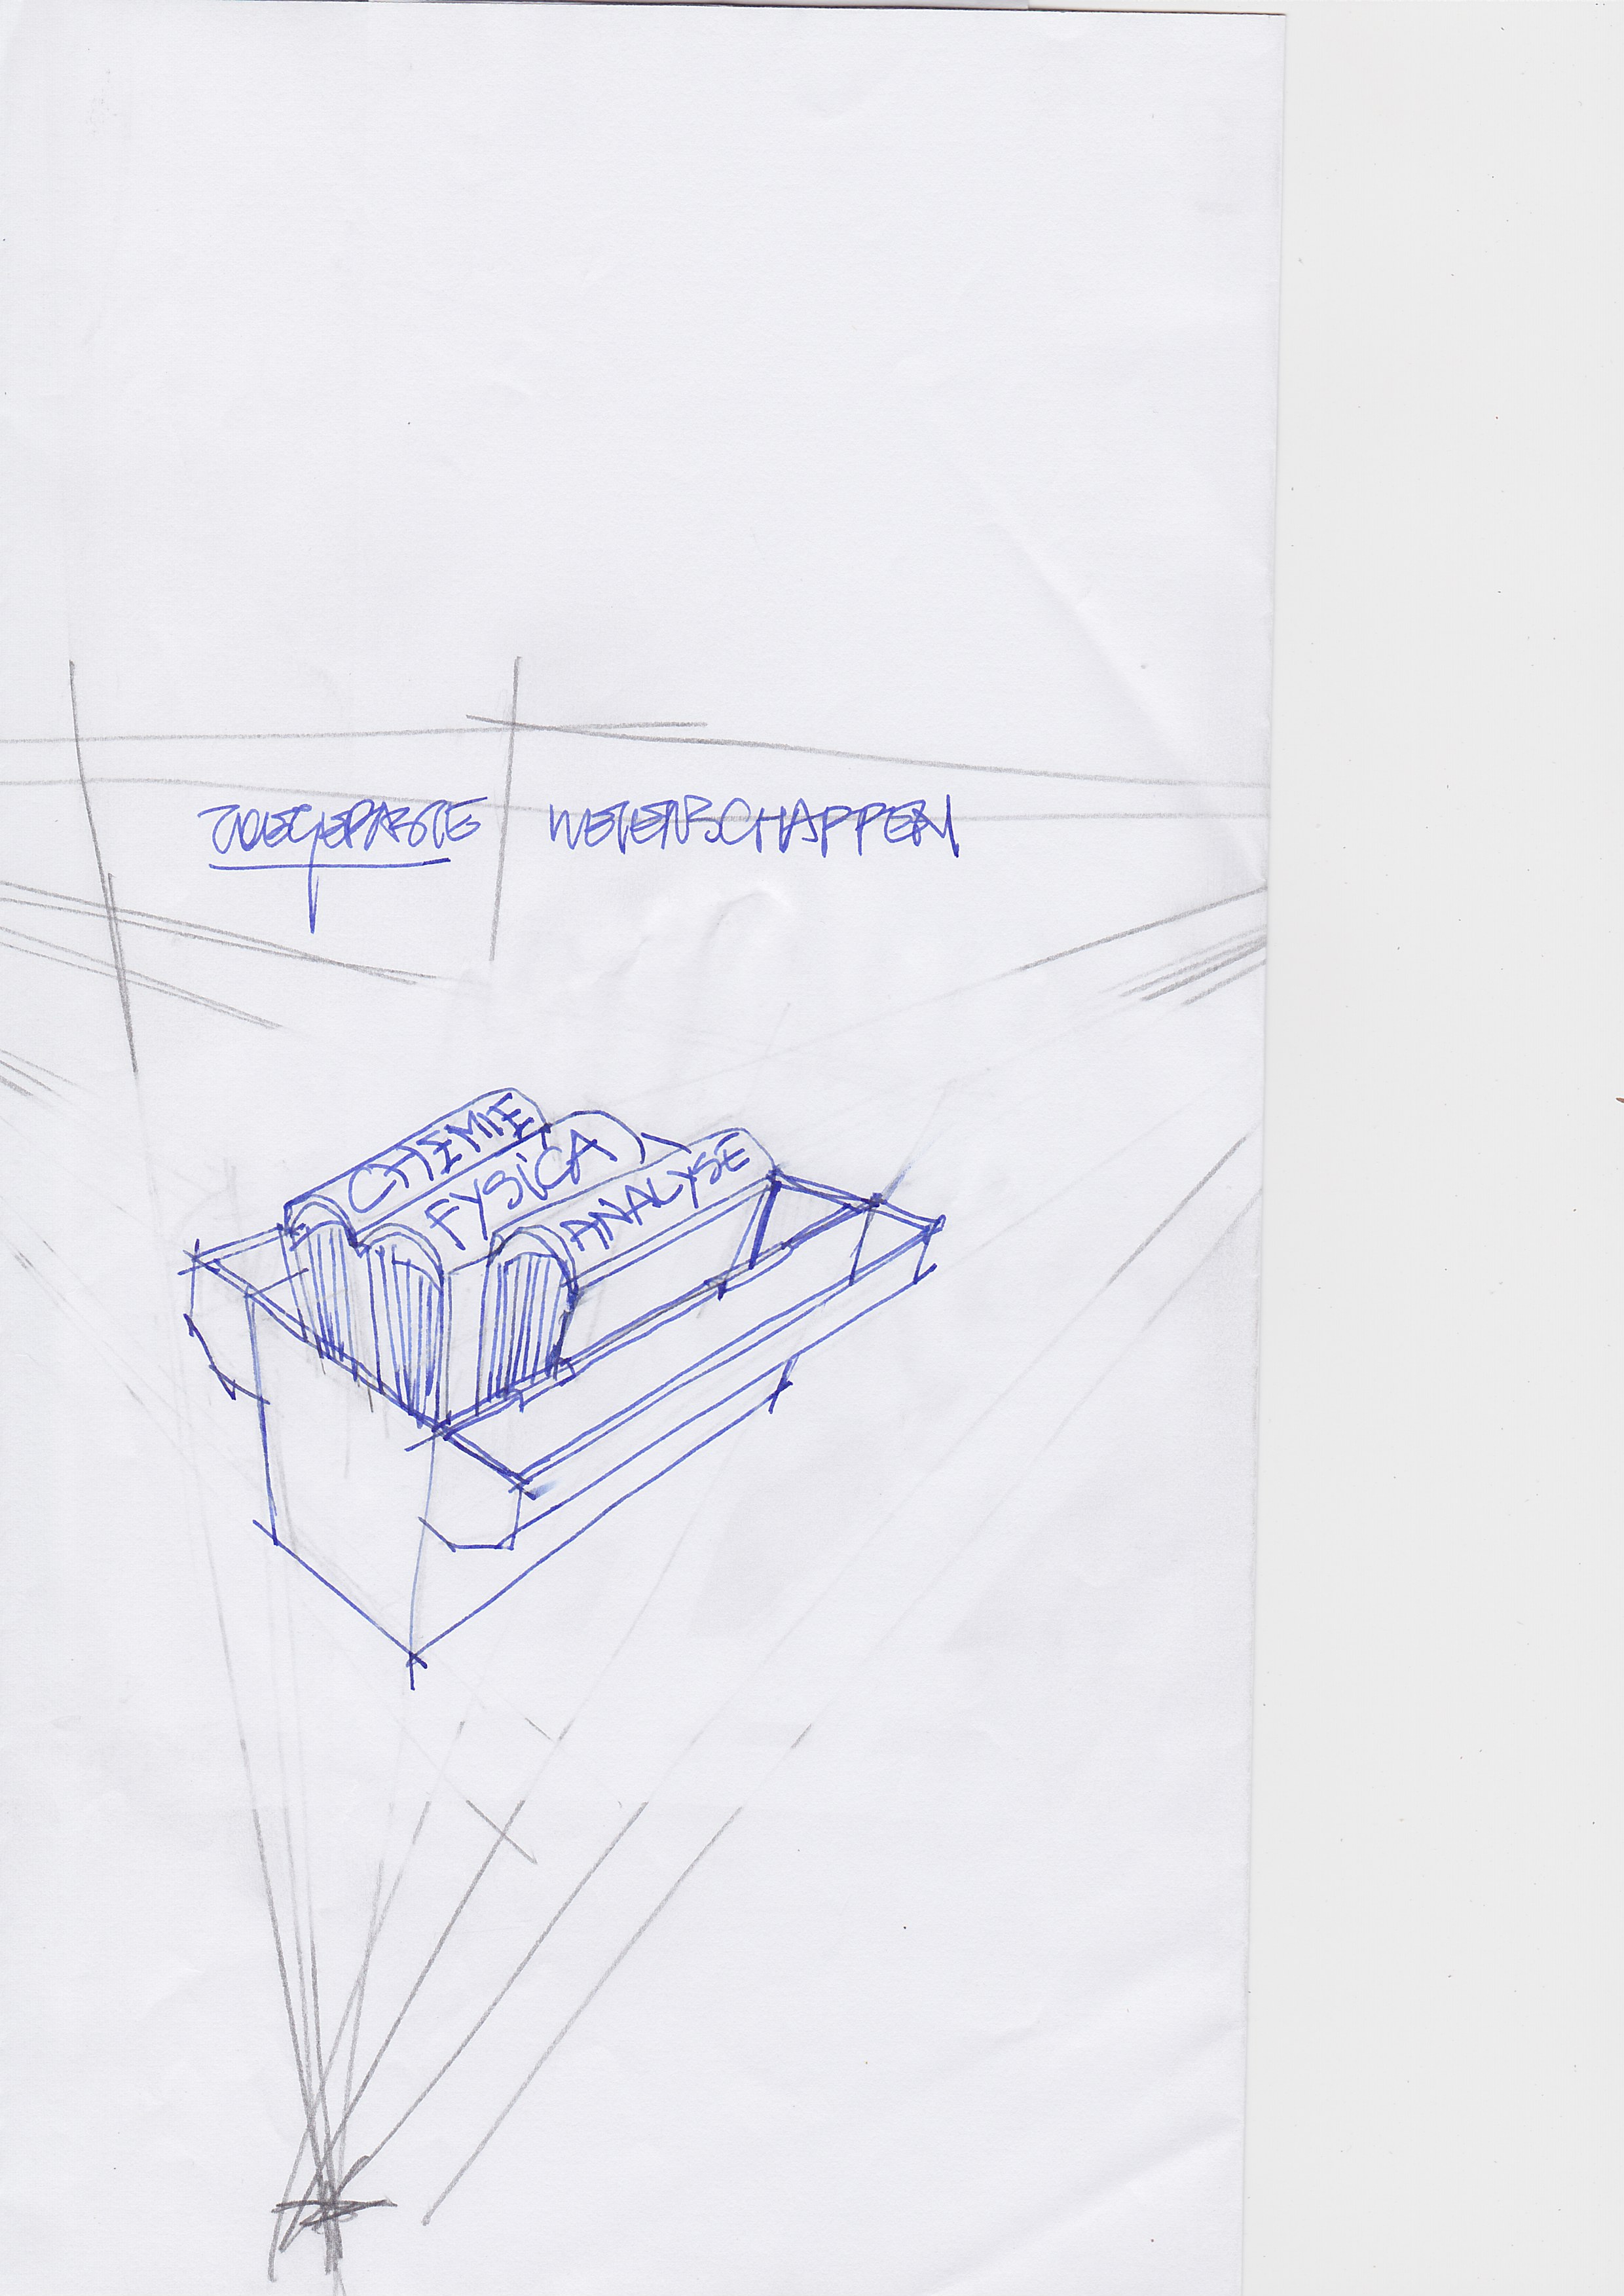 TOEGEPASTE WETENSCHAPPEN
CHEMIE
FYSICA
ANALYSE